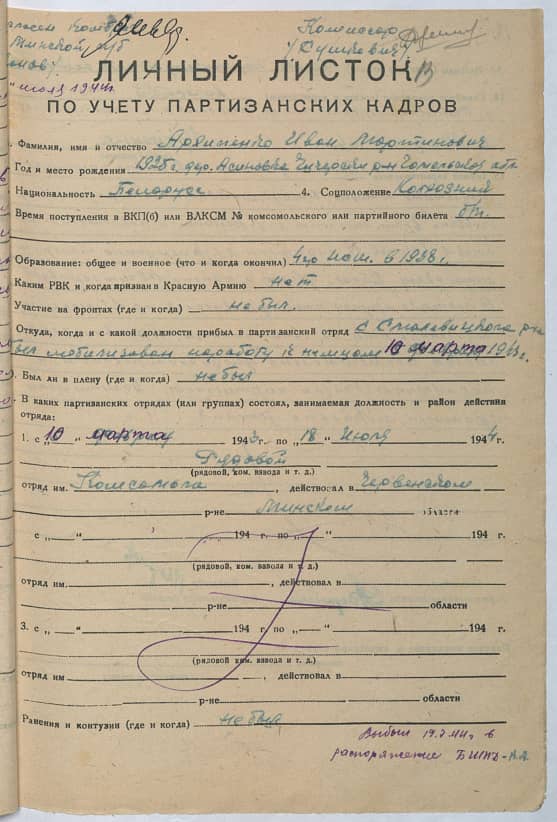 Комиссар
/Сушкевич/
июля 1944г
ЛИЧНЫЙ ЛИСТОК
ПО УЧЕТУ ПАРТИЗАНСКИХ КАДРОВ
Фамилия, имя и отчество Архипенко Иван Мартинович
Год и место рождения 1925г. дер. Асиновка Чичерский р-н Гомельской обл.
Национальность Белорус 4. Соцположение Колхозник
Время поступления в ВКП(б) или ВЛКСМ № комсомольского или партийного билета б/п.
Образование: общее и военное (что и когда окончил) 4 в 1938г.
Каким РВК и когда призван в Красную Армию нет
Участие на фронтах (где и когда) не был.
Откуда, когда и с какой должности прибыл в партизанский отряд С Смолевицкого р-на
был мобилизован на работу к немцам 10 марта 1943г.
Был ли в плену (где и когда) не был
В каких партизанских отрядах (или группах) состоял, занимаемая должность и район действия
отряда:
1. с „10 “ марта 1943 г. по „18 “ Июля 1944 г.
Рядовой
(рядовой, ком. взвода и т. д.)
отряд им. Комсомола , действовал в Червенском
р-не Минской области
с „ “ 194 г. по „ “ 194 г.
(рядовой, ком. взвода и т. д.)
отряд им. , действовал в
р-не области
3. с „ “ 194 г. по „ “ 194 г.
(рядовой ком. взвода и т. д.)
отряд им , действовал в
р-не области
Ранения и контузии (где и когда) не был
Выбыл 19.7.44г. в
распоряжение БШПД